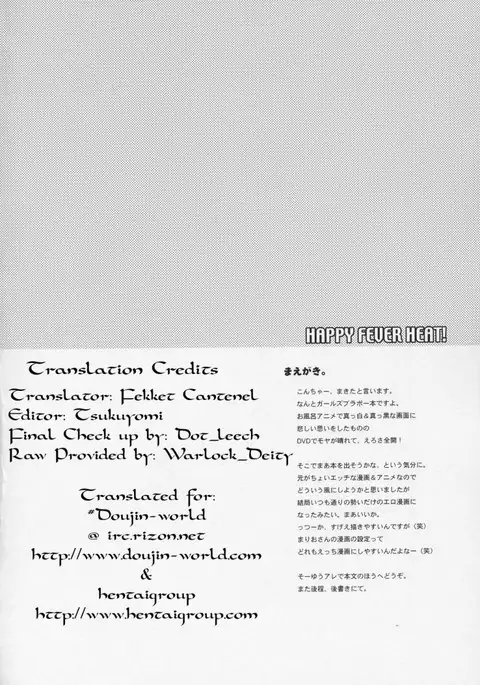 HAPPY FEVER HEAT!
Translation Credits
Translator: Fekket Cantenel
Editor: Tsukuyomi
Final Check up by: Dot_leech
Raw Provided by: Warlock_Deity
Translated for:
#Doujin-world
@ irc.rizon.net
http://www.doujin-world.com
&
hentaigroup
http://www.hentaigroup.com
まえがき。
こんちゃー、まきたと言います。
なんとガールズブラボー本ですよ。
お風呂アニメで真っ白&真っ黒な画面に
悲しい思いをしたものの
DVDでモヤが晴れて、えろさ全開！
そこでまあ本を出そうかな、という気分に。
元がちょいエッチな漫画&アニメなので
どういう風にしようかと思いましたが
結局いつも通りの勢いだけのエロ漫画に
なったみたい。まあいいか。
っつーか、すげえ描きやすいんですが（笑）
まりおさんの漫画の設定って
どれもえっち漫画にしやすいんだよなー（笑）
そーゆうアレで本文のほうへどうぞ。
また後程、後書きにて。